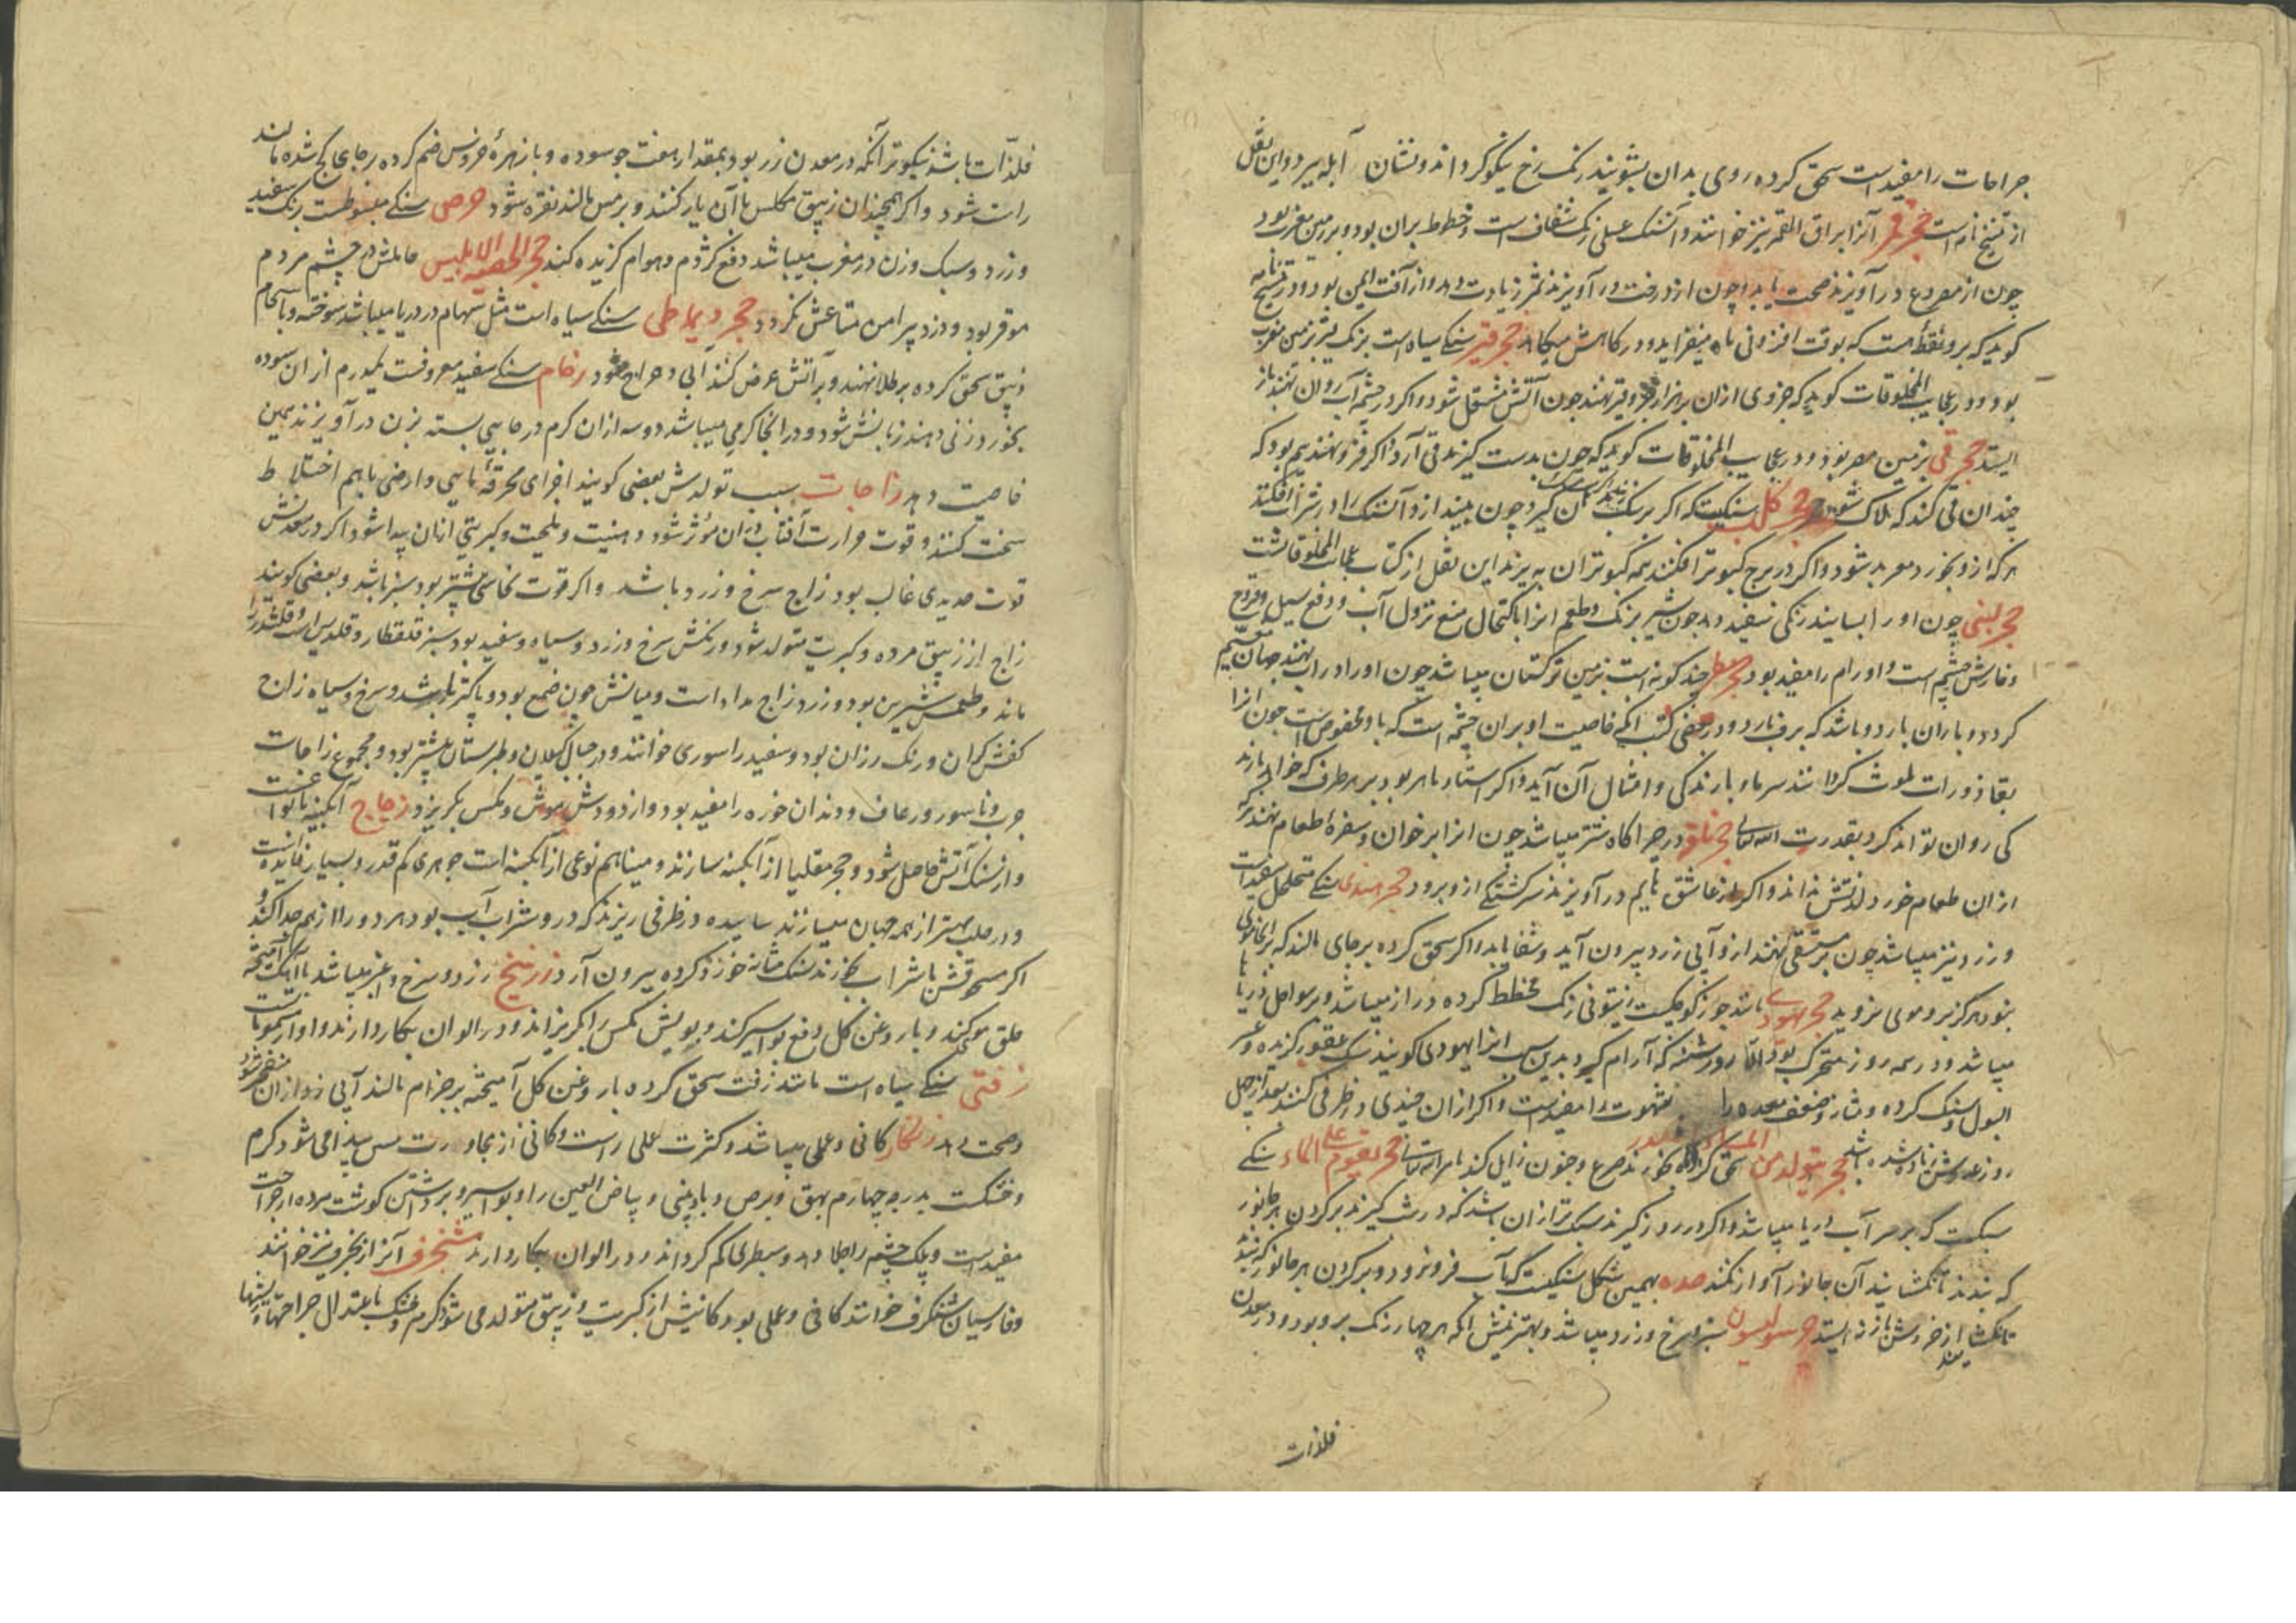 جراحات را مفیدست سحق کرده روی بدان بشویند رنک رخ نیکو کرداند و نشان آبله ببرد و این نقل
از تنسخ نامه است حجر قمر آنرا براق القمر نیز خوانند و آن سنک عسلی رنک شفافست و خطوط بران بود و بر زمین مغرب بود
چون از مصروع درآویزند صحت یابد و چون از درخت درآویزند ثمر زیادت دهد و از آفت ایمن بود و در تنسخ نامه
کوید که برو نقطهٔ هست که بوقت افزونی ماه میفزاید و در کاهش میکاهد حجر قیر سنکی سیاه است برنک قیر بزمین مغرب
بود و در عجایب المخلوقات کوید که جزوی ازان بر هزار جزو قیر نهند چون آتش مشتعل شود و اکر در چشمه آب روان نهند باز
ایستد حجر قی بزمین مصر بود و در عجایب المخلوقات کوید که چون بدست کیرند قی آرد و اکر فرو نهند بیم بود که
چندان قی کند که هلاک شود حجر کلب سنکیست که اکر بر سک زنند آن کیرد و چون بیندازد آن سنک را در شراب افکنند
هر که ازو بخورد معربد شود و اکر در برج کبوتر افکنند همه کبوتران بپرند این نقل از کتاب عجایب المخلوقاتست
حجر لبنی چون او را بسایند رنکی سفید دهد چون شیر برنک و طعم انرا باکتحال منع نزول آب و دفع سیل و قروح
و خارش چشم است و اورام را مفید بود حجر مطر چند کونه است بزمین ترکستان میباشد چون او را در آب نهند جهان مغیم
کردد و باران بارد و باشد که برف بارد و در بعضی کتب آنکه خاصیت او بران چشمه است که باو مخصوص است چون انرا
بقاذورات ملوث کردانند سرما و بارندکی و امثال آن آید و اکر استاد ماهر بود بر هر طرف که خواهد بارند
کی روان تواند کرد بقدرت الله تعالی حجر در چراکاه شتر میباشد چون انرا بر خوان و سفرهٔ طعام نهند هر که
ازان طعام خورد لذتش نداند و اکر از عاشق هایم درآویزند سرکشتکی ازو برود حجر هندی سنکی متخلخل سفیدست
و زرد نیز میباشد چون بر مستسقی نهند ازو آبی زرد بیرون آید و شفا یابد و اکر سحق کرده بر جای مالند که
بنود هرکز برو موی نروید حجر یهودی باشد جوز کوچکیست زیتونی رنک مخطط کرده دراز میباشد و بر سواحل دریا
میباشد و در همه روز متحرک بود الا روز شنبه که آرام کیرد بدین سبب انرا یهودی کویند سک عقور کزیده و عسر
البول و سنک کرده و مثانه و ضعف معده را شهوت را مفیدست و اکر ازان چندی در ظرفی کنند بعد از چهل
روز عددش زیاده شده باشد حجر یتولد من الماء سحق کرده بخورند صرع و جنون زایل کند بامر الله تعالی حجر یقوم علی الماء سنکی
سبکست که بر سر آب دریا میباشد و اکر در روز کیرند سبکتر ازان باشد که در شب کیرند بر کردن هر جانور
که بندند تا نکشایند آن جانور آواز نکند ضده بهمین شکل سنکیست که بآب فرو رود و بر کردن هر جانور که بندند
تا نکشایند از خروش باز نایستد سبز و سرخ و زرد میباشد و بهترینش آنکه هر چهار رنک برو بود و در معدن
فلذات
فلذات باشد نیکوتر آنکه در معدن زر بود و بمقدار هفت جو سوده و با زهرهٔ خروس ضم کرده بر جای کج شده مالند
راست شود و اکر همچندان زیبق مکلس باآن یار کنند و بر مس مالند نقره شود حرص سنکی منبوطست برنک سفید
و زرد و سبک وزن در مغرب میباشد دفع کژدم و هوام کزیده کند حجر الخصیه الابلیس حاملش در چشم مردم
موقر بود و دزد پیرامن متاعش نکردد حجر دیماطی سنکی سیاه است مثل سهام در دریا میباشد سوخته و باسحام
زیبق سحق کرده بر طلا نهند و بر آتش عرض کنند آبی و حراج شود رخام سنکی سفید معروفست یکدرم ازان سوده
بخورد زنی دهند زبانش شود و در آنجا کرمی میباشد دو سه ازان کرم در جایی بسته بزن درآویزند همین
خاصیت دهد زاجات سبب تولدش بعضی کویند اجزای محرقهٔ مایی و ارضی باهم اختلاط
سخت کنند و قوت حرارت آفتاب دران مؤثر شود دهنیت و ملحیت و کبریتی ازان پیدا شود اکر در معدنش
قوت حدیدی غالب بود زاج سرخ و زرد باشد و اکر قوت نحاسی بیشتر بود سبز باشد و بعضی کویند
زاج از زیبق مرده و کبریت متولد شود و رنکش سرخ و زرد و سیاه و سفید بود سبز قلقطار و قلدیس است و قلقند را
ماند و طعمش شیرین بود و زرد زاج مداد است و میانش چون صمغ بود و پاکتر باشد و سرخ و سیاه زاج
کفشکران و رنک رزان بود و سفید را سوری خوانند و در جبال کیلان و طبرستان بیشتر بود و مجموع زاجات
جرب و ناسور و رعاف و دندان خوره را مفید بود و از دودش موش و مکس بکریزد زجاج آبکینه بانواعست
و از سنک آتش حاصل شود و حجر مقلیا از آبکینه سازند و مینا هم نوعی از آبکینه است جوهری کم قدر و بسیار فایده است
و در حلب بهتر از همه جهان میسازند ساییده در ظرفی ریزند که درو شراب و آب بود هر دو را از هم جدا کند و
اکر مسحوقش با شراب بخورند سنک مثانه خورد کرده بیرون آرد زرنیخ زرد و سرخ و اغبر میباشد با آهک آمیخته
حلق مو کند و با روغن کل دفع بواسیر کند و بویش مکس را بکریزاند و در الوان بکار دارند و او از سمومات
زفتی سنکی سیاه است مانند زفت سحق کرده با روغن کل آمیخته بر جذام مالند آبی زرد ازان منفجر شود
و صحت دهد زنکار کانی و عملی میباشد و کثرت عملی راست و کانی از مجاورت مس پیدا می شود کرم
و خشکست بدرجه چهارم بهق و برص و باد بینی و بیاض العین را و بواسیر و برداشتن کوشت مرده از جراحت
مفیدست و پلک چشم را جلا دهد و سطبری را کم کرداند و در الوان بکار دارند شنجرف آنرا زنجرف نیز خوانند
و فارسیان شنکرف خوانند کانی و عملی بود کانیش از کبریت و زیبق متولد می شود کرم و خشک باعتدال جراحتها و ریشها